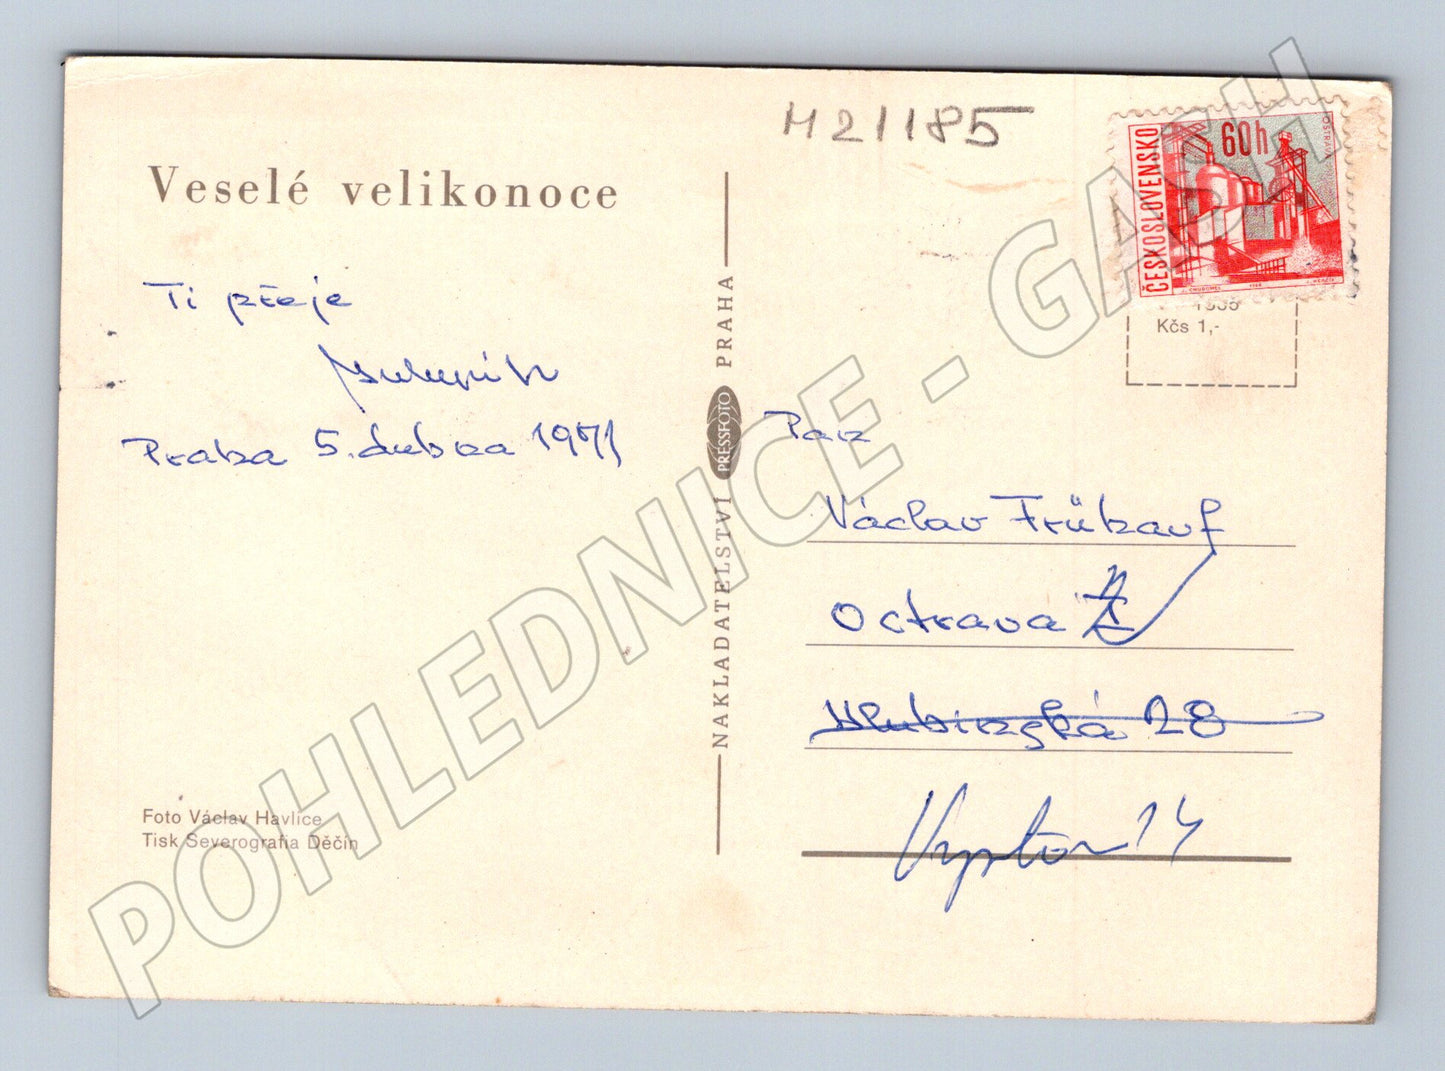 M21185
ČESKOSLOVENSKO
60h
OSTRAVA
Veselé velikonoce
Ti přeje
Praha 5. dubna 1971
NAKLADATELSTVÍ PRESSFOTO PRAHA
Kčs 1,-
Pan
Václav Frühauf
Ostrava
Hlubinská 28
14
Foto Václav Havlice
Tisk Severografia Děčín
POHLEDNICE - GACH